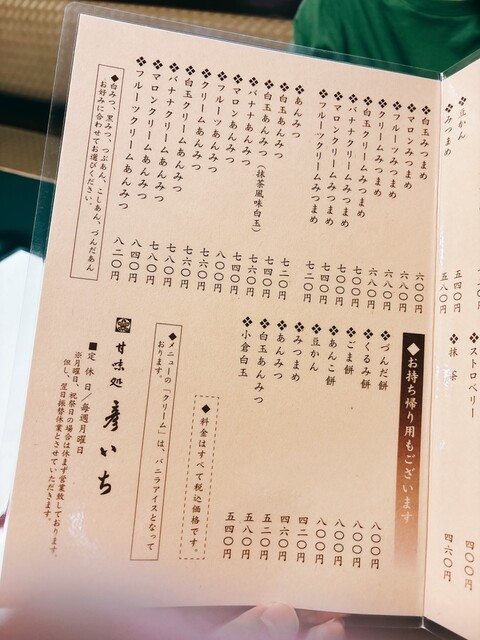 ❖豆かん 五四〇円
❖みつまめ 五八〇円
❖白玉みつまめ 六〇〇円
❖マロンみつまめ 六八〇円
❖フルーツみつまめ 六八〇円
❖クリームみつまめ 六八〇円
❖白玉クリームみつまめ 七〇〇円
❖バナナクリームみつまめ 七〇〇円
❖マロンクリームみつまめ 七二〇円
❖フルーツクリームみつまめ 七二〇円
❖あんみつ 七二〇円
❖白玉あんみつ 七四〇円
❖白玉あんみつ（抹茶風味白玉） 七六〇円
❖バナナあんみつ 七四〇円
❖マロンあんみつ 八〇〇円
❖フルーツあんみつ 七六〇円
❖クリームあんみつ 七六〇円
❖白玉クリームあんみつ 七八〇円
❖バナナクリームあんみつ 七八〇円
❖マロンクリームあんみつ 八四〇円
❖フルーツクリームあんみつ 八二〇円
◆白みつ、黒みつ、つぶあん、こしあん、づんだあん
お好みに合わせてお選びください。
ストロベリー 四〇〇円
❖抹茶 四六〇円
◆お持ち帰り用もございます
❖づんだ餅 八〇〇円
❖くるみ餅 八〇〇円
❖ごま餅 八〇〇円
❖あんこ餅 八〇〇円
❖豆かん 四二〇円
❖みつまめ 四六〇円
❖あんみつ 五二〇円
❖白玉あんみつ 五八〇円
❖小倉白玉 五四〇円
◆料金はすべて税込価格です。
◆メニューの「クリーム」は、バニラアイスとなって
おります。
甘味処 彦いち
■定休日／毎週月曜日
※月曜日、祝祭日の場合は休まず営業致しております。
但し、翌日振替休業とさせていただきます。